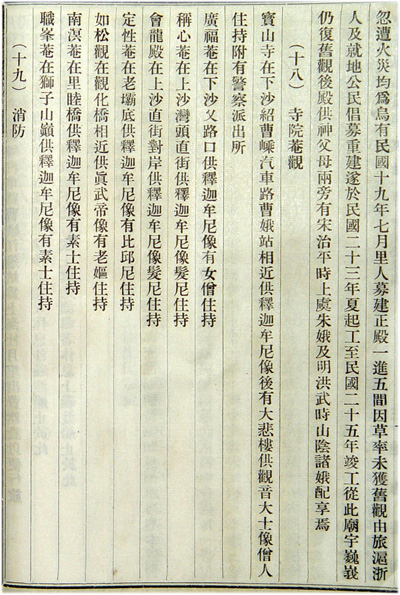 忽遭火災均爲烏有民國十九年七月里人募建正殿一進五間因草率未獲舊觀由旅滬浙
人及就地公民倡募重建遂於民國二十三年夏起工至民國二十五年竣工從此廟宇巍峩
仍復舊觀後殿供神父母兩旁有宋治平時上虞朱娥及明洪武時山陰諸娥配享焉
（十八）　寺院菴觀
寶山寺在下沙紹曹嵊汽車路曹娥站相近供釋迦牟尼像後有大悲樓供觀音大士像僧人
住持附有警察派出所
廣福菴在下沙叉路口供釋迦牟尼像有女僧住持
稱心菴在上沙灣頭直街供釋迦牟尼像髮尼住持
會龍殿在上沙直街對岸供釋迦牟尼像髮尼住持
定性菴在老壩底供釋迦牟尼像有比邱尼住持
如松觀在觀化橋相近供眞武帝像有老嫗住持
南溟菴在里睦橋供釋迦牟尼像有素士住持
職峯菴在獅子山巔供釋迦牟尼像有素士住持
（十九）　消防